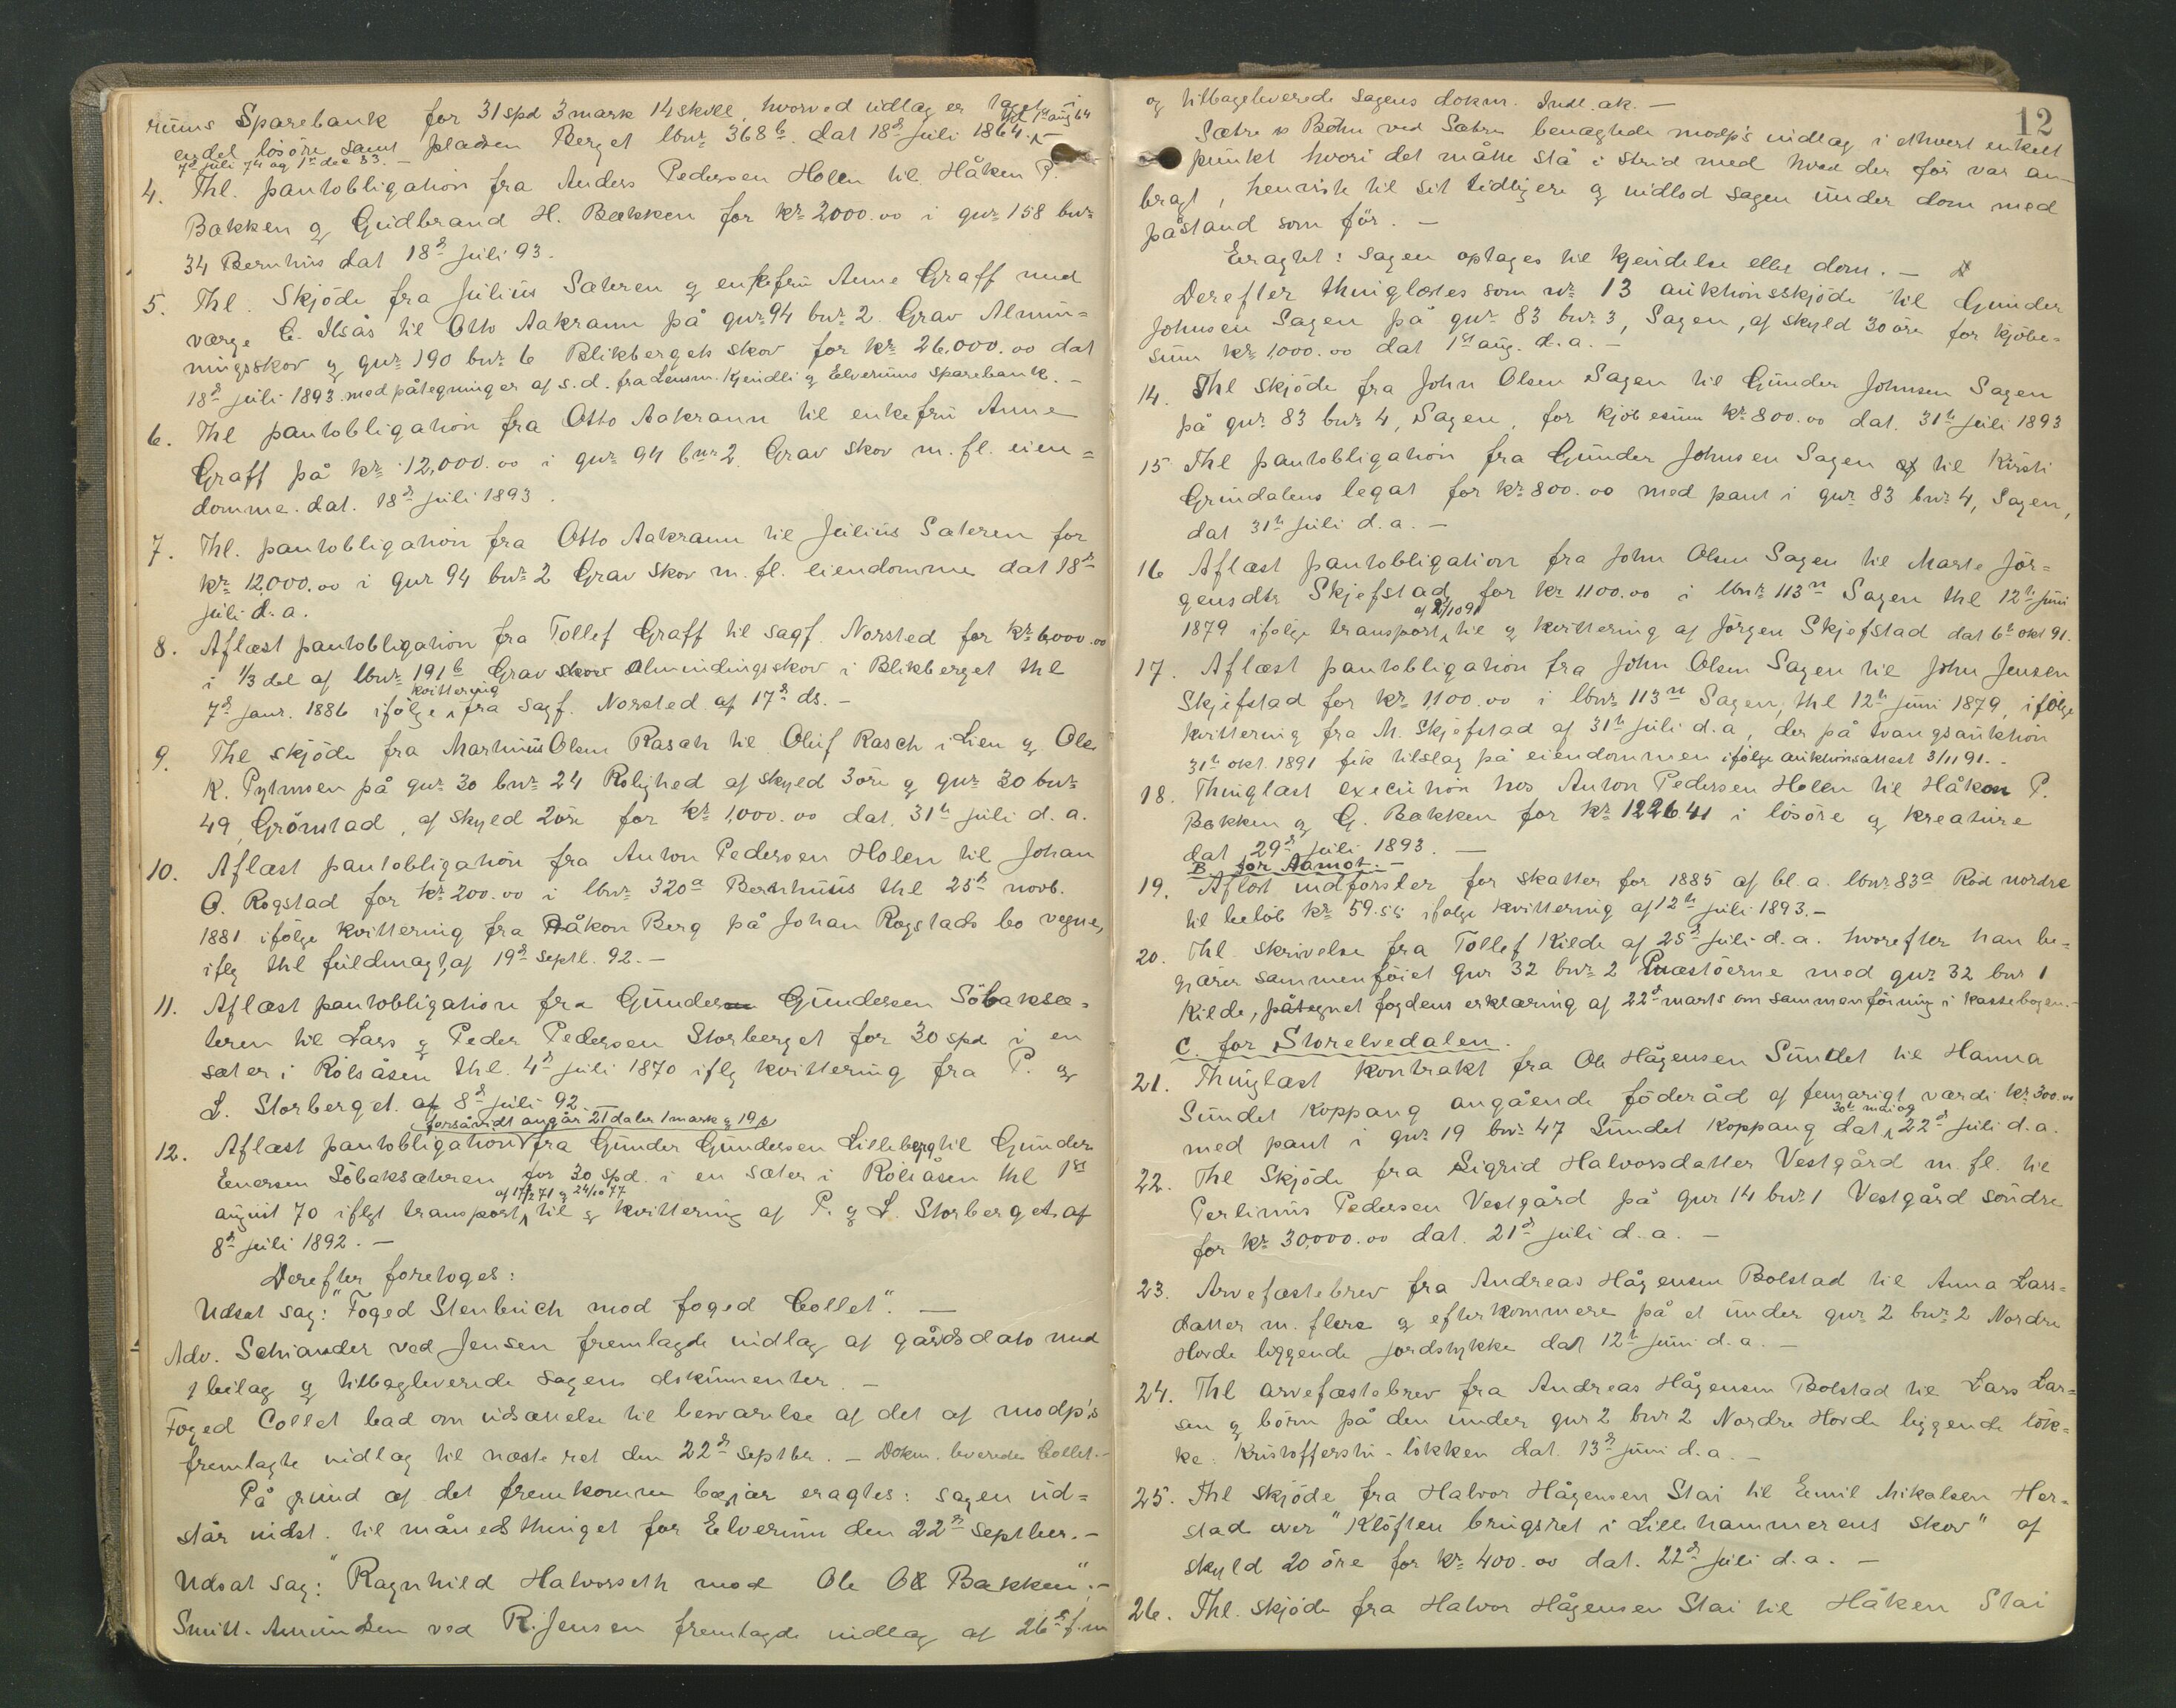 rums Sparebank for 31 spd 3 mark 14 skill, hvorved udlag er taget i
thl 1st aug 64
endel lösöre samt pladsen Berget lbnr 368b dat 18d juli 1864. –
7d juli 74 og 1st dec 83. –
4. Thl. pantobligation fra Anders Pedersen Holen til Håken P.
Bakken g Gudbrand H. Bakken for kr 2000.00 i gnr 158 bnr
34 Bernhus dat 18d juli 93.
5. Thl. Skjöde fra Julius Sætren g enkefru Anne Graff med
værge C. Ilsås til Otto Aakrann på gnr 94 bnr 2 Grav Almin=
ningsskov g gnr 190 bnr 6 Blikbergets skov for kr 26,000.00 dat
18d juli 1893 med påtegninger af s.d. fra Lensm. Kjendli g Elverums Sparebank. –
6. Thl pantobligation fra Otto Aakrann til enkefru Anne
Graff på kr 12,000.00 i gnr 94 bnr 2 Grav skov m. fl. eien=
domme. dat. 18d juli 1893.
7. Thl. pantobligation fra Otto Aakrann til Julius Sætren for
kr 12,000.00 i gnr 94 bnr 2 Grav skov m. fl. eiendomme dat 18d
juli d.a.
8. Aflæst pantobligation fra Tollef Graff til sagf. Norsted for kr 6000.00
i 1/3 del af lbnr 191b Grav skov Almindingsskov i Blikberget thl
kvittering
7d janr. 1886 ifölge fra sagf. Norsted af 17d ds. –
9. Thl skjöde fra Martinius Olsen Rasch til Oluf Rasch i Lien g Ole
K. Pytmoen på gnr 30 bnr 24 Rolighed af skyld 3 öre g gnr 30 bnr
49, Grönstad, af skyld 2 öre for kr 1,000.00 dat. 31te juli d.a.
10. Aflæst pantobligation fra Anton Pedersen Holen til Johan
O. Rogstad for kr 200.00 i lbnr 320a Bernhuus thl 25te novb.
1881 ifölge kvittering fra Håkon Berg på Johan Rogstads bo vegne,
iflg thl fuldmagt, af 19d septb. 92. –
11. Aflæst pantobligation fra Gunder Gundersen Söbaksæ=
teren til Lars g Peder Pedersen Storberget for 30 spd i en
sæter i Rölsåsen thl. 4d juli 1870 iflg kvittering fra P. g
L. Storberget. af 8d juli 92
forsåvidt angår 21 daler 1 mark g 19 s
12. Aflæst pantobligation fra Gunder Gundersen Lilleberg til Gunder
Enersen Söbaksæteren for 30 spd. i en sæter i Rölsåsen thl 1st
af 17/2 71 g 24/10 77
august 70 iflgt transport til g kvittering af P. g L. Storberget af
8d juli 1892. –
Derefter foretoges:
Udsat sag: "Foged Stenbuch mod foged Collet". –
Adv. Schiander ved Jensen fremlagde indlag af gårsdato med
1 beilag g tilbagleverede sagens dokumenter. –
Foged Collet bad om udsættelse til besvarelse af det af modp's
fremlagte indlag til næste ret den 22d septbr. – Dokm. leveredes Collet. –
På grund af det fremkomne begjær eragtes: sagen ud=
står indst. til månedsthinget for Elverum den 22d septber. –
Udsat sag: "Ragnhild Halvorseth mod Ole O Bakken". –
Smitt-Amundsen ved R. Jensen fremlagde indlag af 26d f.m
12
og tilbageleverede sagens dokm. Indl. ak. –
Sætre & Böhn ved Sætre benægtede modp's indlag i ethvert enkelt
punkt hvori det måtte stå i strid med hvad der för var an–
bragt, henviste til sit tidligere g indlod sagen under dom med
påstand som för. –
Eragtet: Sagen optages til kjendelse eller dom. –
Derefter thinglæstes som nr 13 auktionsskjöde til Gunder
Johnsen Sagen på gnr 83 bnr 3, Sagen, af skyld 30 öre for kjöbe=
sum kr 1,000.00 dat 1st aug. d.a. –
14. Thl skjöde fra John Olsen Sagen til Gunder Johnsen Sagen
på gnr 83 bnr 4, Sagen, for kjöbesum kr 800.00 dat. 31te juli 1893
15 Thl pantobligation fra Gunder Johnsen Sagen til Kirsti
Grindalens legat for kr 800.00 med pant i gnr 83 bnr 4, Sagen,
dat 31te juli d.a. –
16 Aflæst pantobligation fra John Olsen Sagen til Marte Jör=
gensdtr Skjefstad for kr 1100.00 i lbnr 113n Sagen thl 12te juni
af 2/10 91
1879 ifölge transport til g kvittering af Jörgen Skjefstad dat 6te okt 91.
17. Aflæst pantobligation fra John Olsen Sagen til John Jensen
Skjefstad for kr 1,100.00 i lbnr 113n Sagen, thl 12te juni 1879, ifölge
kvittering fra M. Skjefstad af 31te juli d.a, der på tvangsauktion
31te okt. 1891 fik tilslag på eiendommen ifölge auktionsattest 3/11 91. –
18. Thinglæst execution hos Anton Pedersen Holen til Håkon P.
Bakken g G. Bakken for kr 1226 41 i lösöre g kreature
dat 29d juli 1893. –
B for Aamot. –
19. Aflæst udförsler for skatter for 1885 af bl.a. lbnr 83a Röd nordre
til belöb kr 59.55 ifölge kvittering af 12te juli 1893. –
20. Thl. skrivelse fra Tollef Kilde af 25d juli d.a. hvorefter han be=
gjærer sammenföiet gnr 32 bnr 2 Præstöerne med gnr 32 bnr 1
Kilde, påtegnet fogdens erklæring af 22d marts om sammenföining i kassebogen. –
C. for Storelvedalen.
21. Thinglæst kontrakt fra Ole Hågensen Sundet til Hanna
Sundet Koppang angående föderåd af femårigt værdi kr 300.00
30te mai og
med pant i gnr 19 bnr 47 Sundet Koppang dat 22d juli d.a.
22. Thl Skjöde fra Sigrid Halvorsdatter Vestgård m. fl. til
Perlinus Pedersen Vestgård på gnr 14 bnr 1 Vestgård söndre
for kr 30,000.00 dat. 21d juli d.a. –
23. Arvefæstebrev fra Andreas Hågensen Bolstad til Anna Lars=
datter m. flere g efterkommere på et under gnr 2 bnr 2 Nordre
Horde liggende jordstykke dat 12te juni d.a. –
24. Thl arvefæstebrev fra Andreas Hågensen Bolstad til Lars Lar=
sen g börn på den under gnr 2 bnr 2 Nordre Horde liggende lök=
ke: Kristoffersti-lökken dat. 13d juni d.a. –
25. Thl skjöde fra Halvor Hågensen Stai til Emil Mikalsen Har=
stad over "Klöften brugsret i Lillehammerens skov" af
skyld 20 öre for kr 400.00 dat. 22d juli d.a. –
26. Thl. skjöde fra Halvor Hågensen Stai til Håken Stai